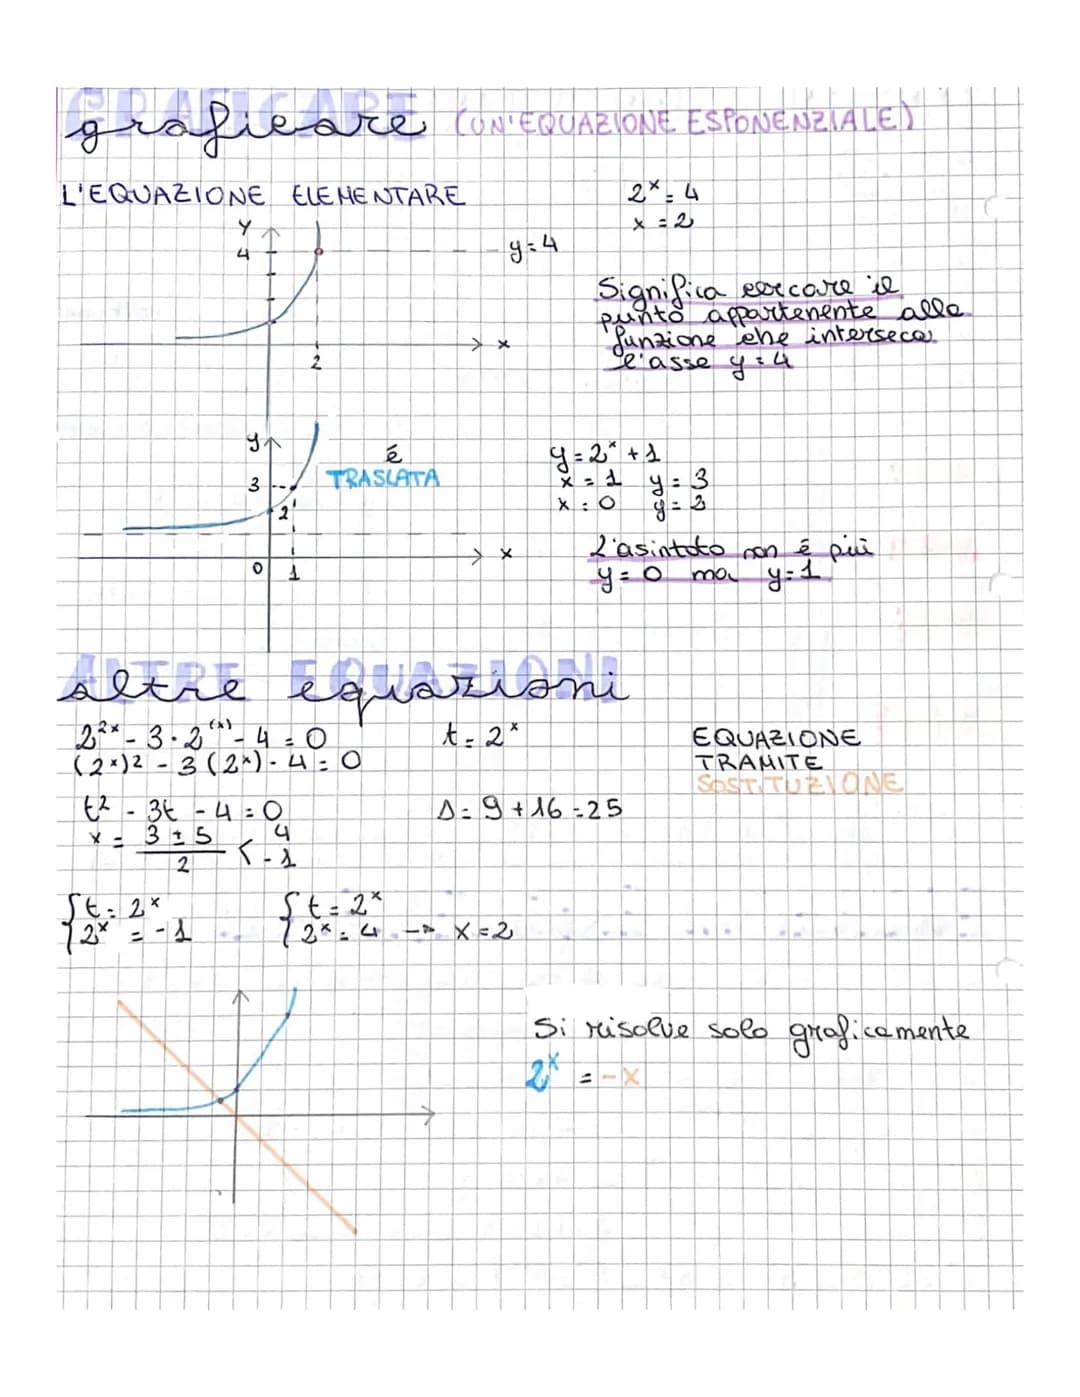 GRAFICARE
graficare (UN'EQUAZIONE ESPONENZIALE)
L'EQUAZIONE ELEMENTARE
2ˣ = 4
x = 2
y
4
y = 4
x
2
Significa cercare il
punto appartenente alla
funzione che interseca
l'asse y = 4
y
3
2
0
1
x
é
TRASLATA
y = 2ˣ + 1
x = 1 y = 3
x = 0 y = 2
L'asintoto non é più
y = 0 ma y = 1
ALTRE EQUAZIONI
altre equazioni
2²ˣ - 3 · 2⁽ˣ⁾ - 4 = 0 t = 2ˣ
(2ˣ)2 - 3 (2ˣ) - 4 = 0
EQUAZIONE
TRAMITE
SOSTITUZIONE
t² - 3t - 4 = 0 Δ = 9 + 16 = 25
x = 3 ± 5 / 2 < 4 -1
{ t = 2ˣ { t = 2ˣ
2ˣ = -1 2ˣ = 4 → x = 2
Si risolve solo graficamente
2ˣ = -x